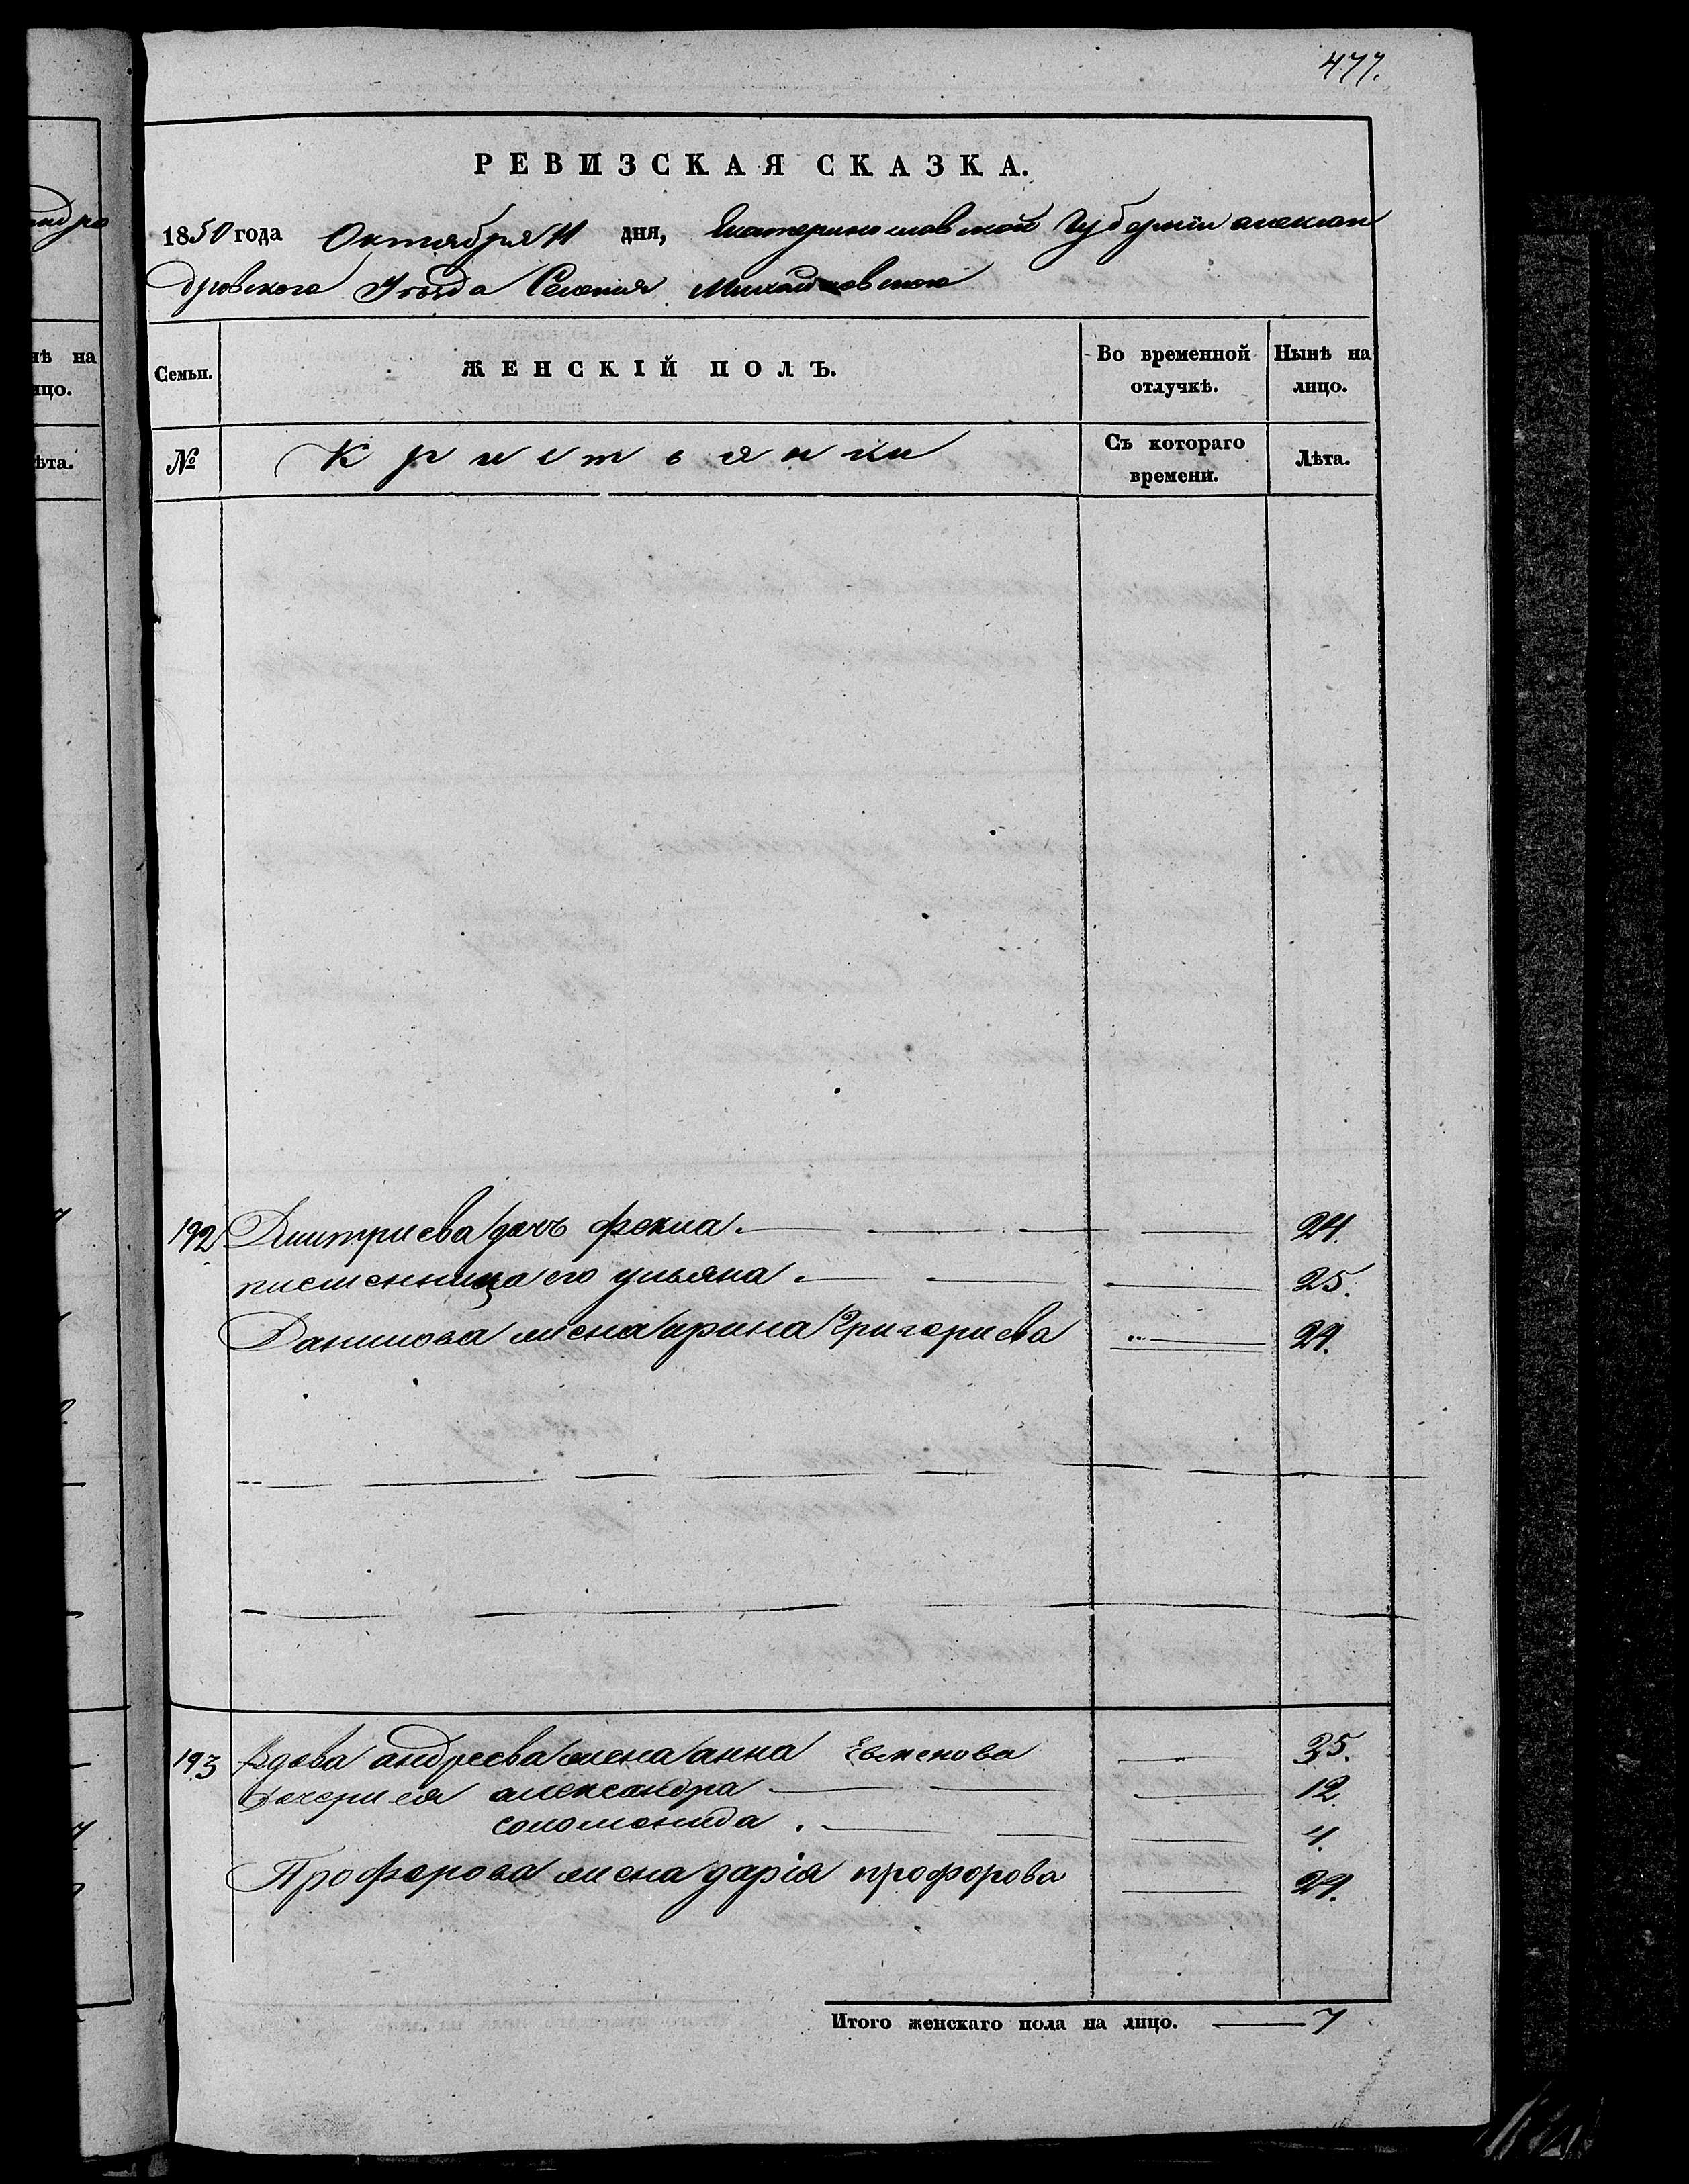 477.
РЕВИЗСКАЯ СКАЗКА.
1850 года Октября 11 дня, Екатеринославской Губерніи алексан
дровского Уѣзда Селенія Михайловского
Семьи.
ЖЕНСКІЙ ПОЛЪ.
Во временной отлучкѣ.
Нынѣ на лицо.
№
Крестьянки
Съ котораго времени.
Лѣта.
192 Дмитриева дочь фекла. 24.
племенница его ульяна. 25.
Данилова жена ирина Григориева 24.
193 Вдова андреева жена анна Евменова 35.
Дочери ея александра 12.
соломонида. 4.
Профорова жена дарія профорова 24.
Итого женскаго пола на лицо. 7